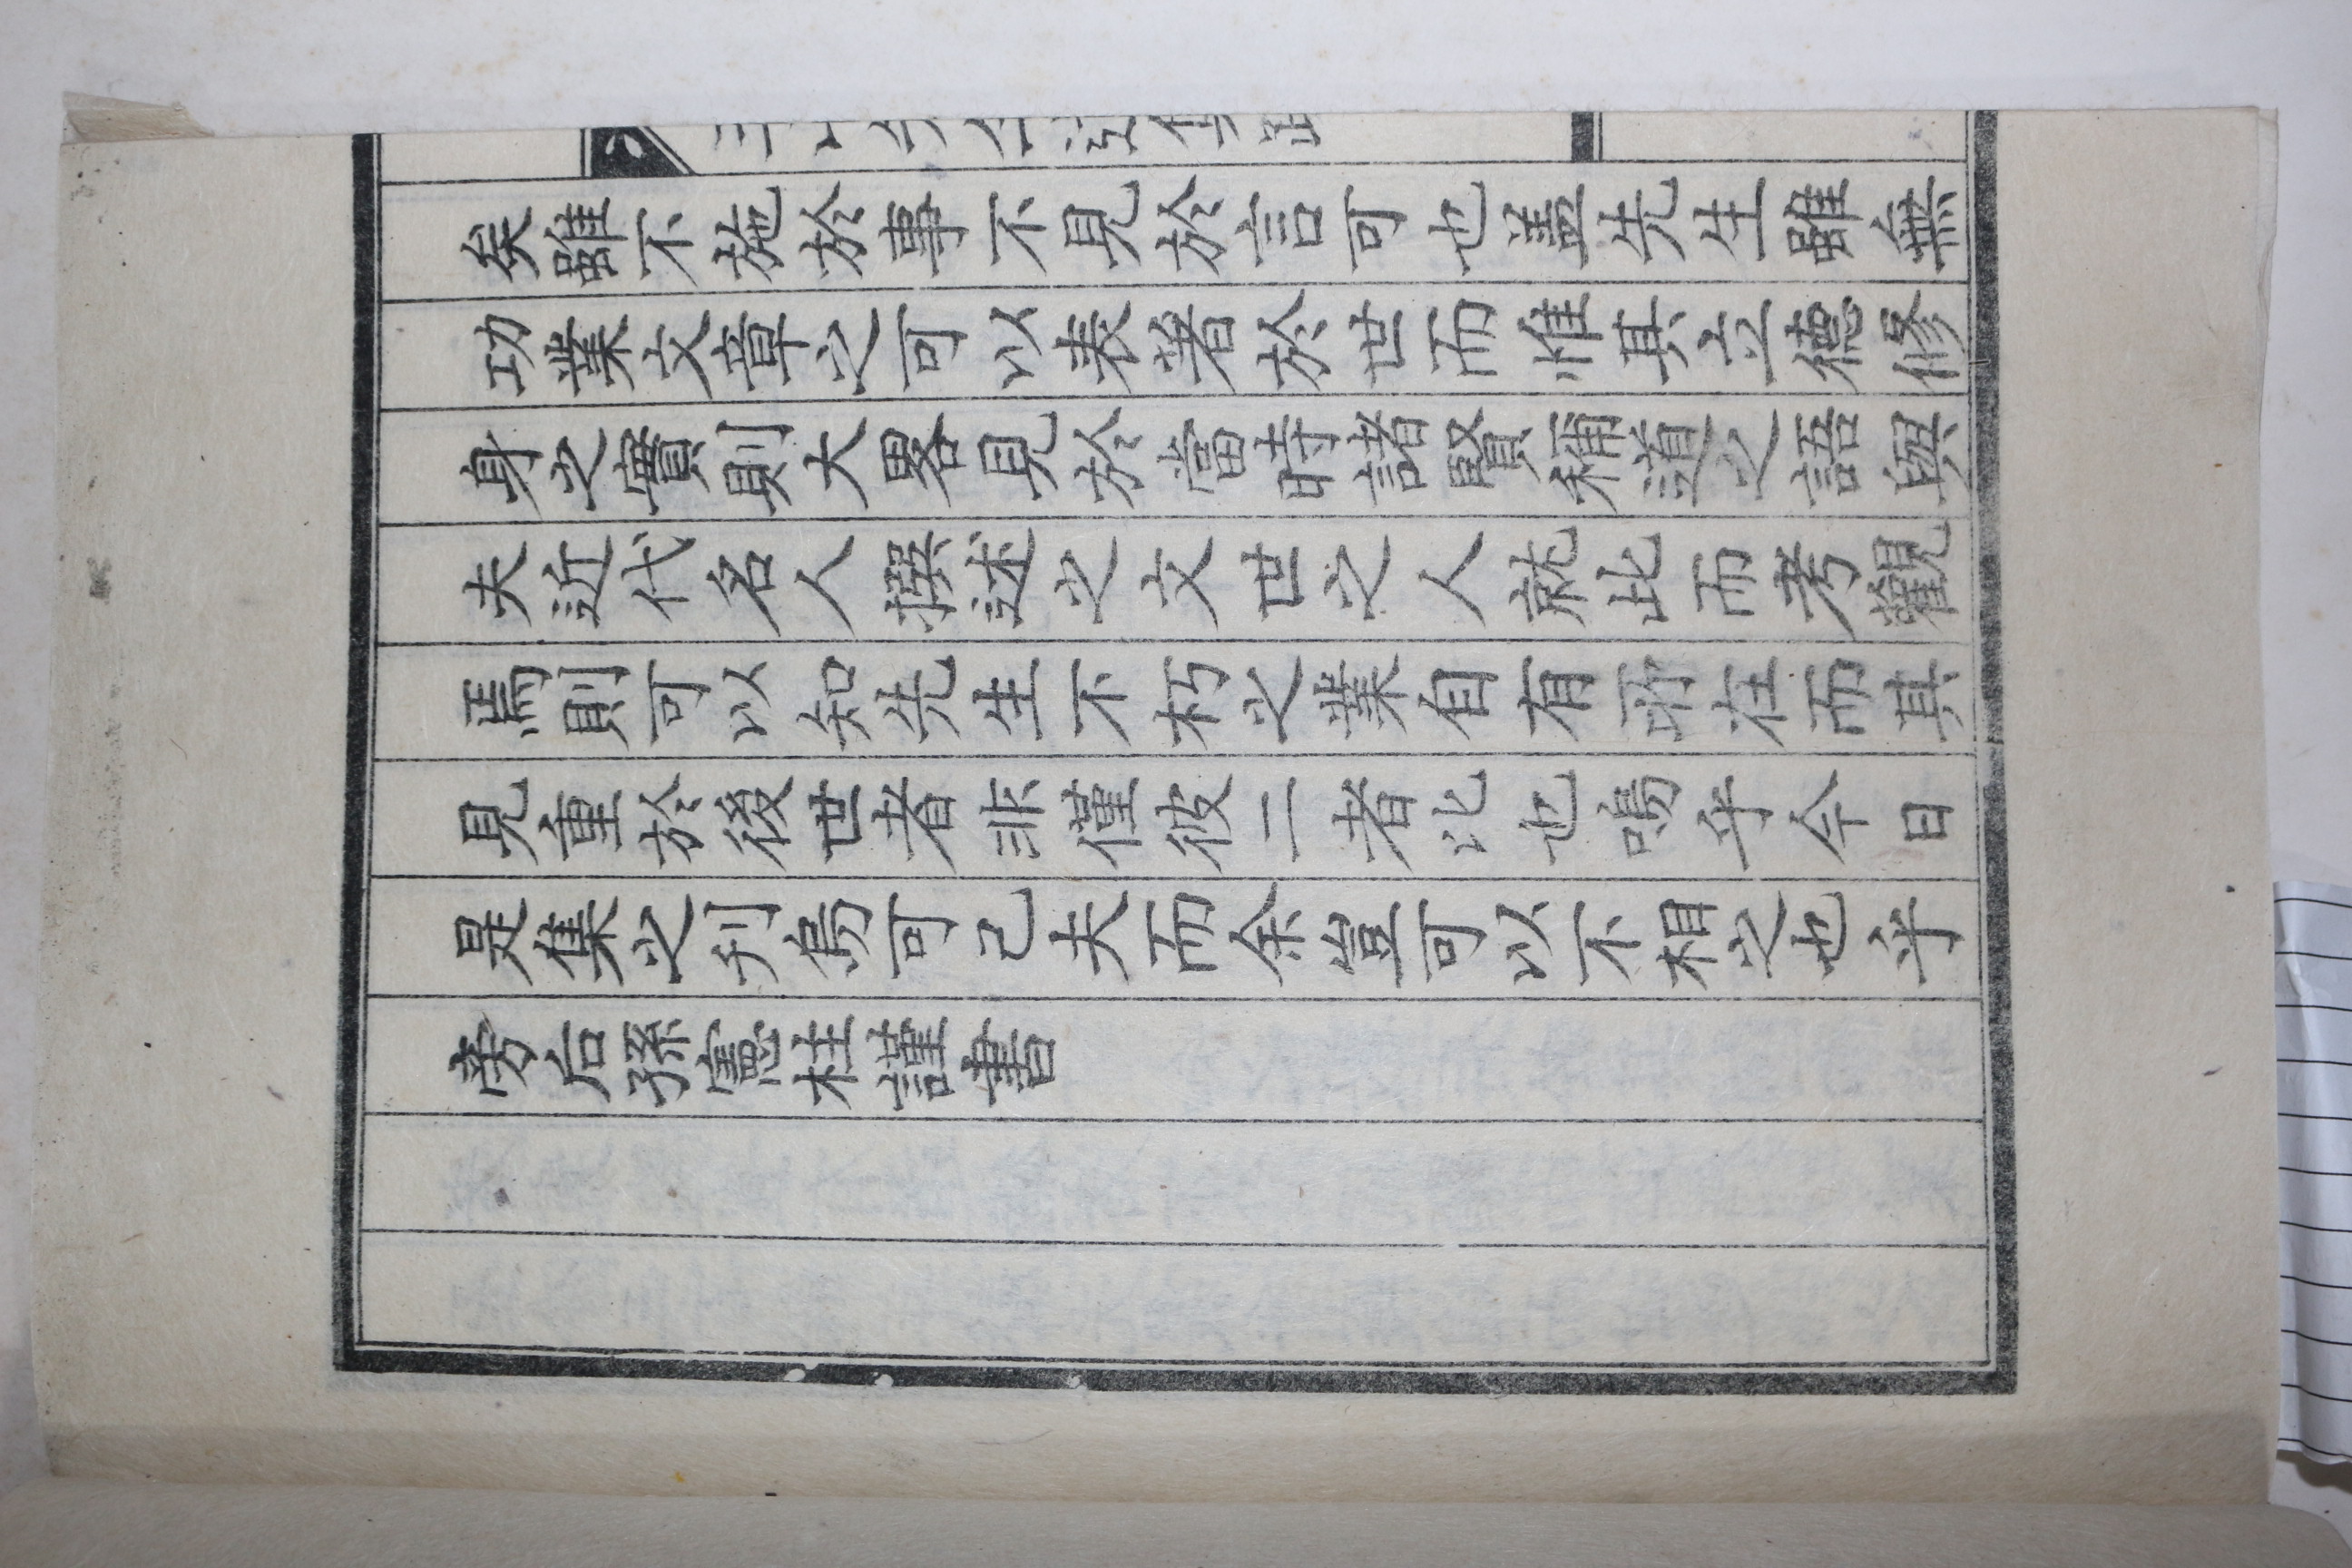 矣雖不施於事不見於言可也盖先生雖無
功業文章之可以表著於世而惟其立德修
身之實則大畧見於當時諸賢稱道之語與
夫近代名人撰述之文世之人就此而考觀
焉則可以知先生不朽之業自有所在而其
見重於後世者非僅彼二者比也嗚乎今日
是集之刋烏可已夫而余豈可以不相之也乎
旁后孫憲柱謹書